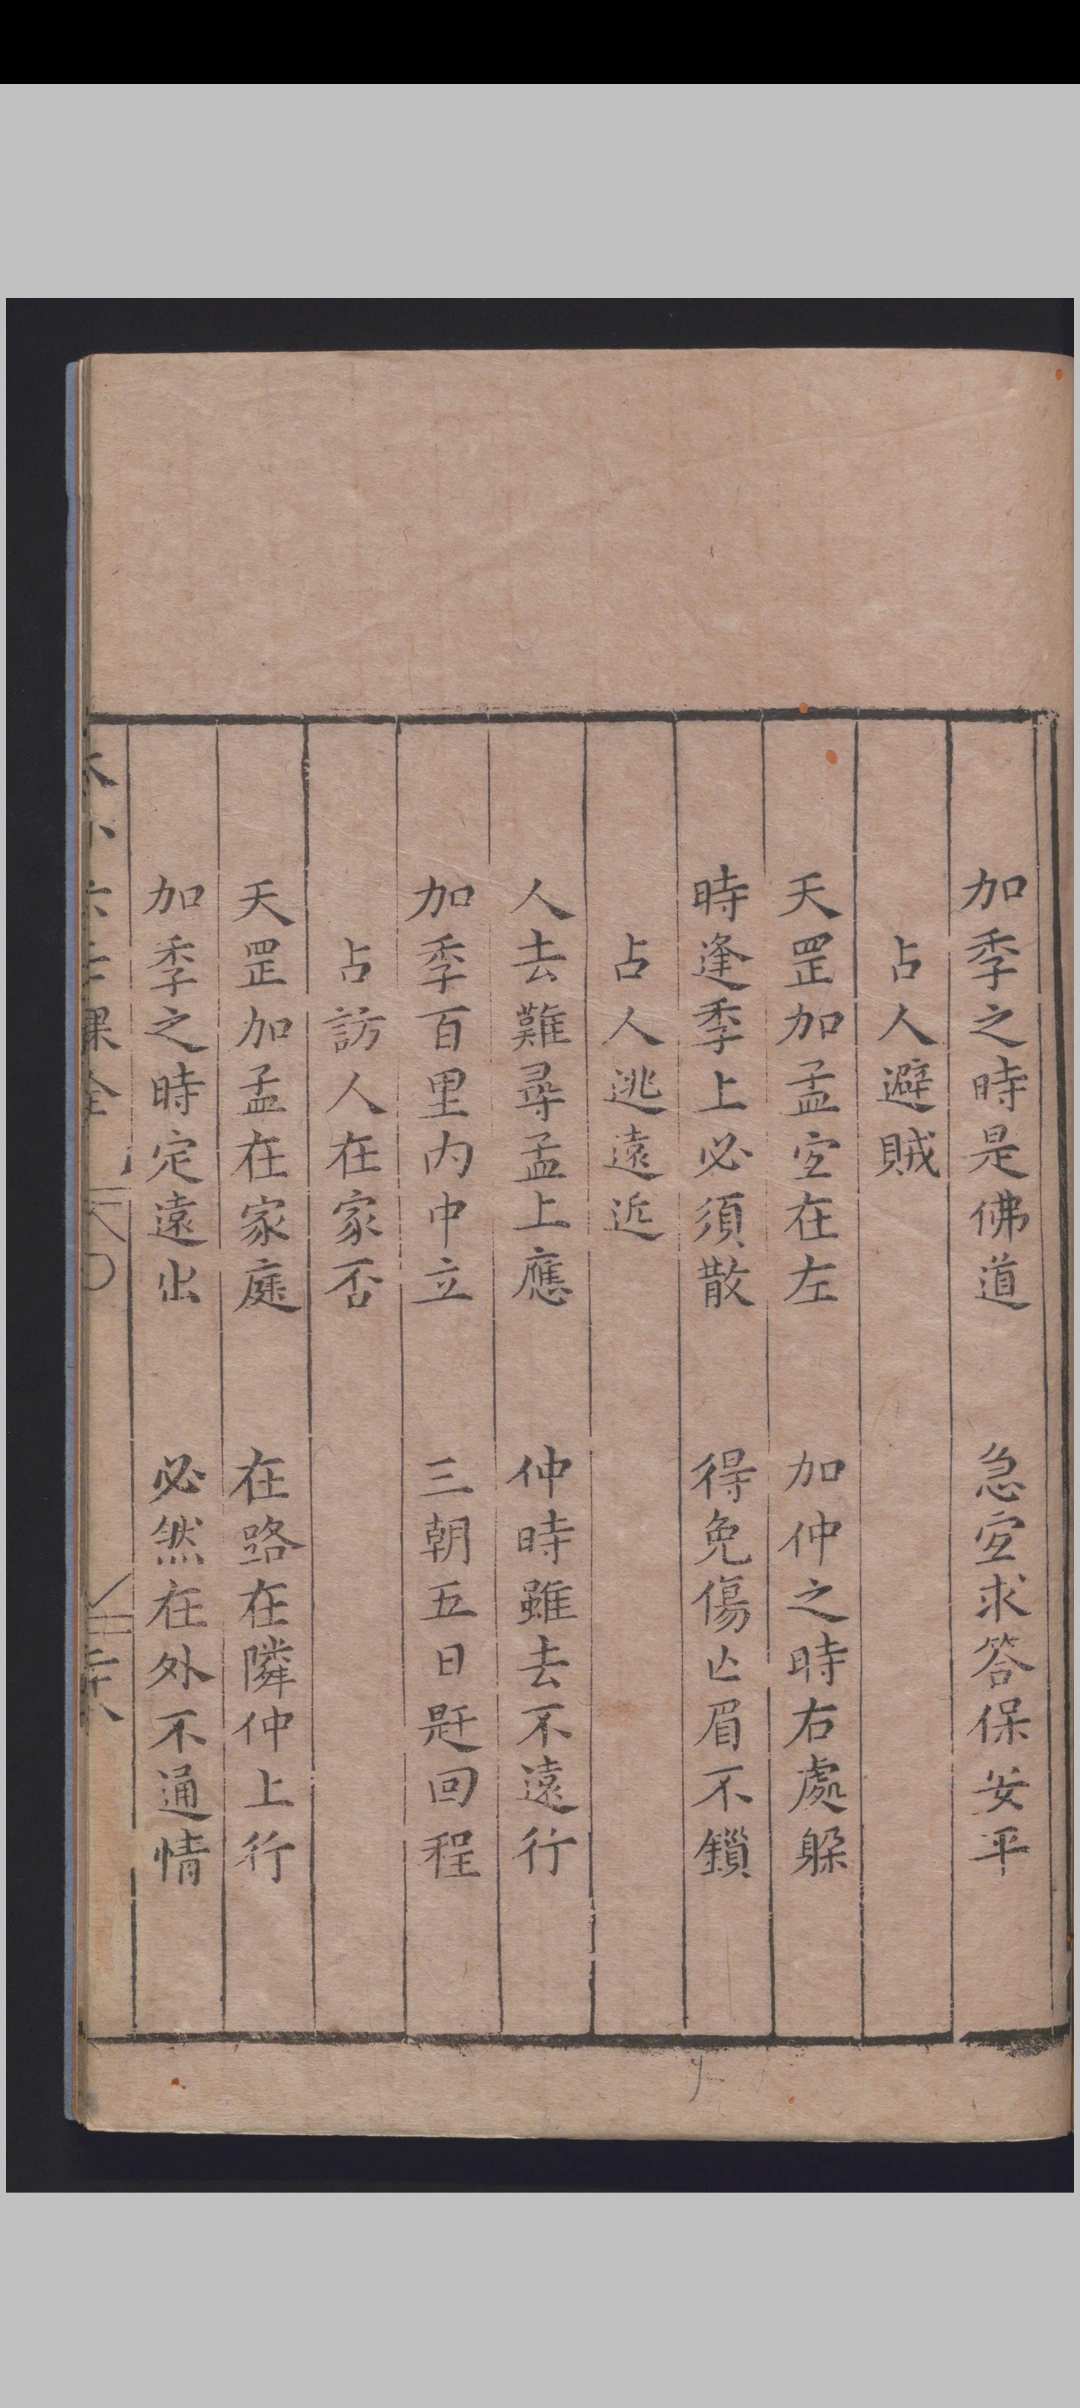 加季之時是佛道　急宜求答保安平
占人避賊
天罡加孟宜在左　加仲之時右處躲
時逢季上必須散　得免傷亡眉不鎖
占人逃遠近
人去難尋孟上應　仲時雖去不遠行
加季百里內中立　三朝五日赶回程
占訪人在家否
天罡加孟在家庭　在路在隣仲上行
加季之時定遠出　必然在外不通情
六壬課全